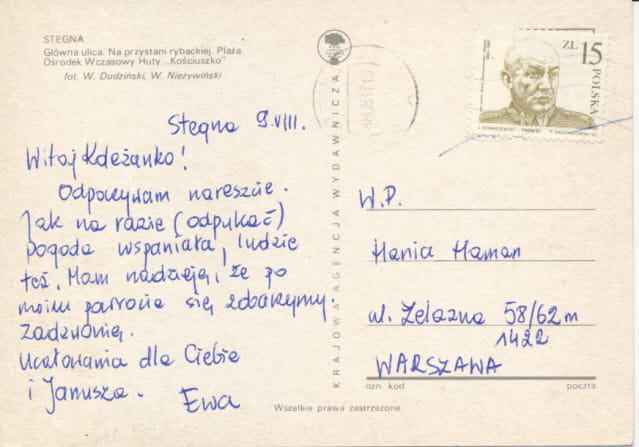 STEGNA
Główna ulica. Na przystani rybackiej. Plaża
Ośrodek Wczasowy Huty „Kościuszko"
fot. W. Dudziński, W. Nieżywiński
KRAJOWA AGENCJA WYDAWNICZA
ZŁ 15
POLSKA
Stegna 9.VIII.
Witaj Koleżanko!
Odpoczywam nareszcie.
Jak na razie (odpukać)
pogoda wspaniała, ludzie
też. Mam nadzieję, że po
moim powrocie się zobaczymy.
Zadzwonię.
Ucałowania dla Ciebie
i Janusza. Ewa
W.P.
Hania Haman
ul. Żelazna 58/62 m
1422
WARSZAWA
ozn kod poczta
Wszelkie prawa zastrzeżone